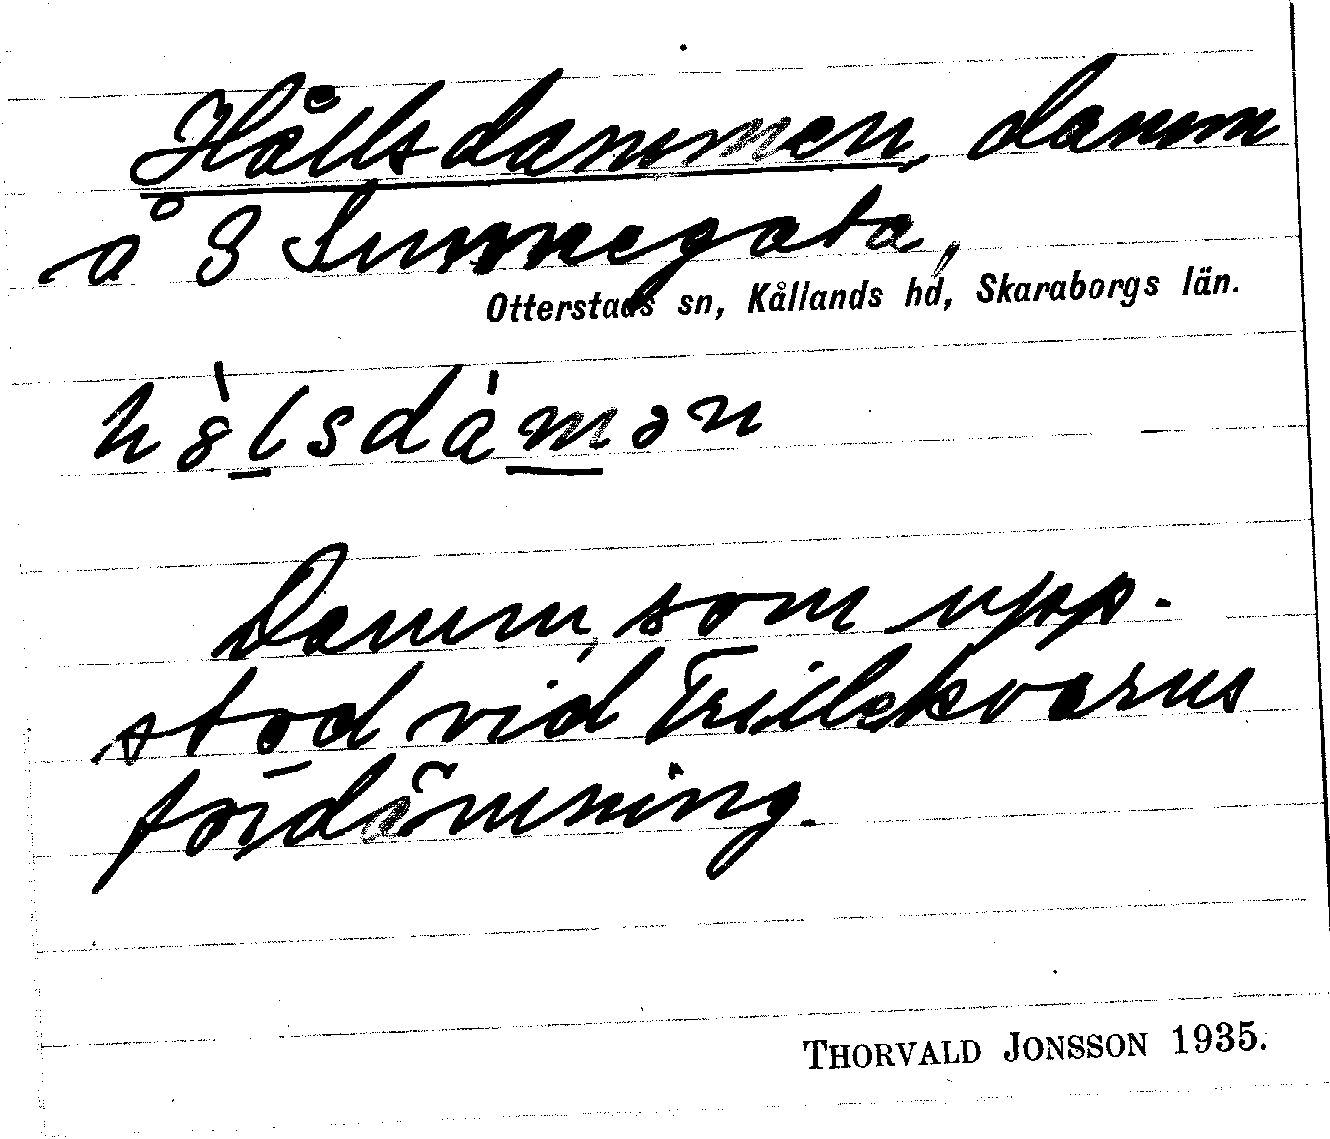 Hållsdammen, damm
å 8 Sunnegata,
Otterstads sn, Kållands hd, Skaraborgs län.
hȯ̀lsdàmən
Damm, som upp-
stod vid Trillekvarns
fördämning.
THORVALD JONSSON 1935.